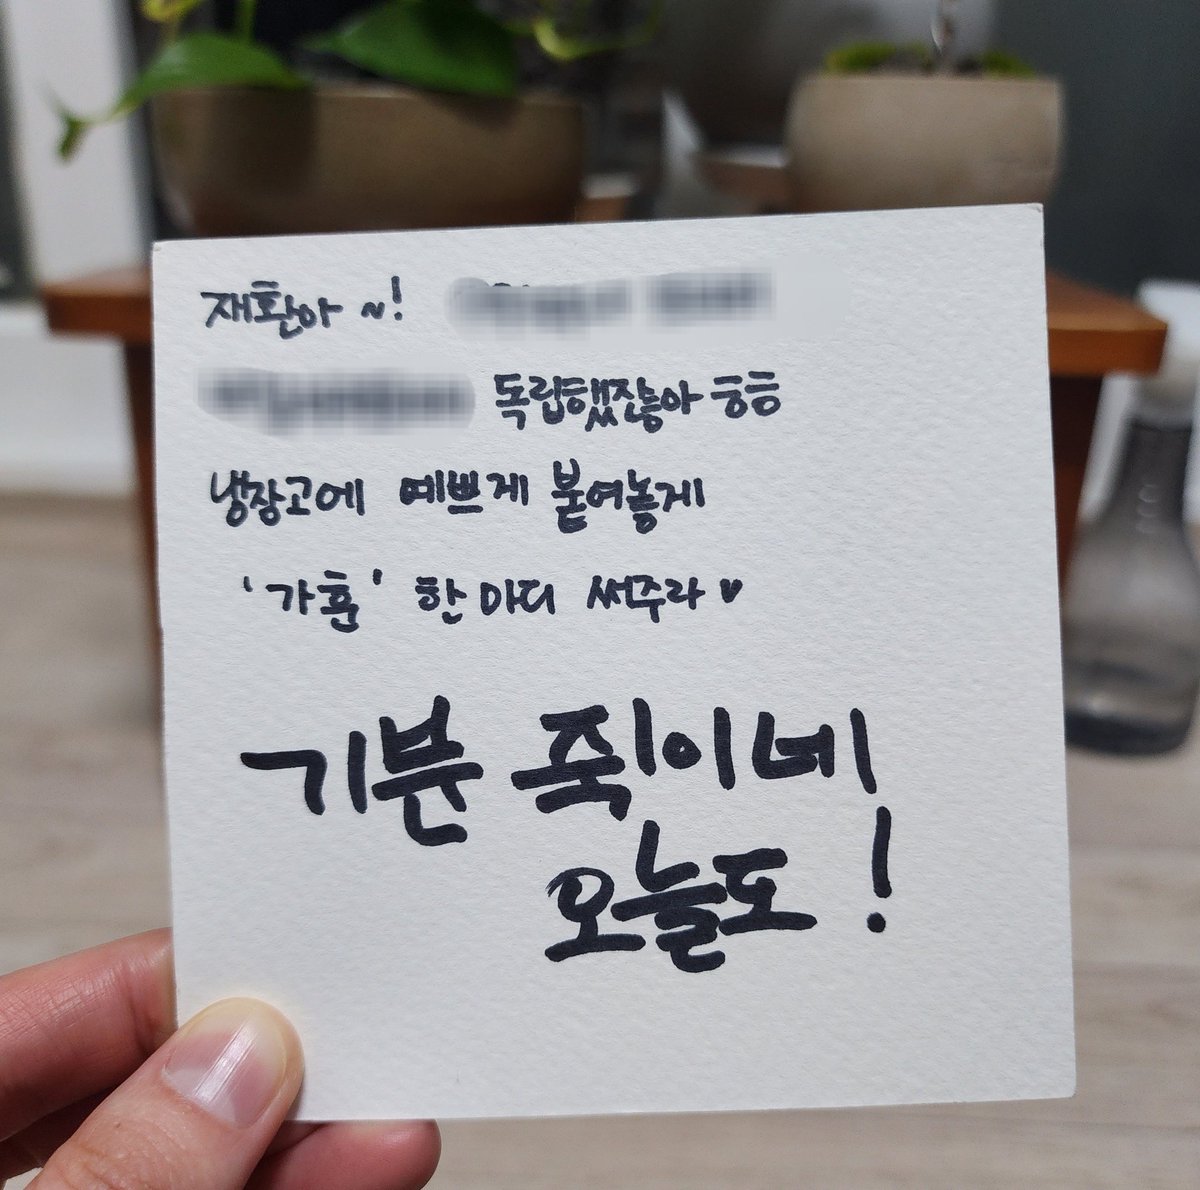 재환아 ~!
독립했잖아 ㅎㅎ
냉장고에 예쁘게 붙여놓게
'가훈' 한 마디 써주라 ♥
기분 죽이네!
오늘도!